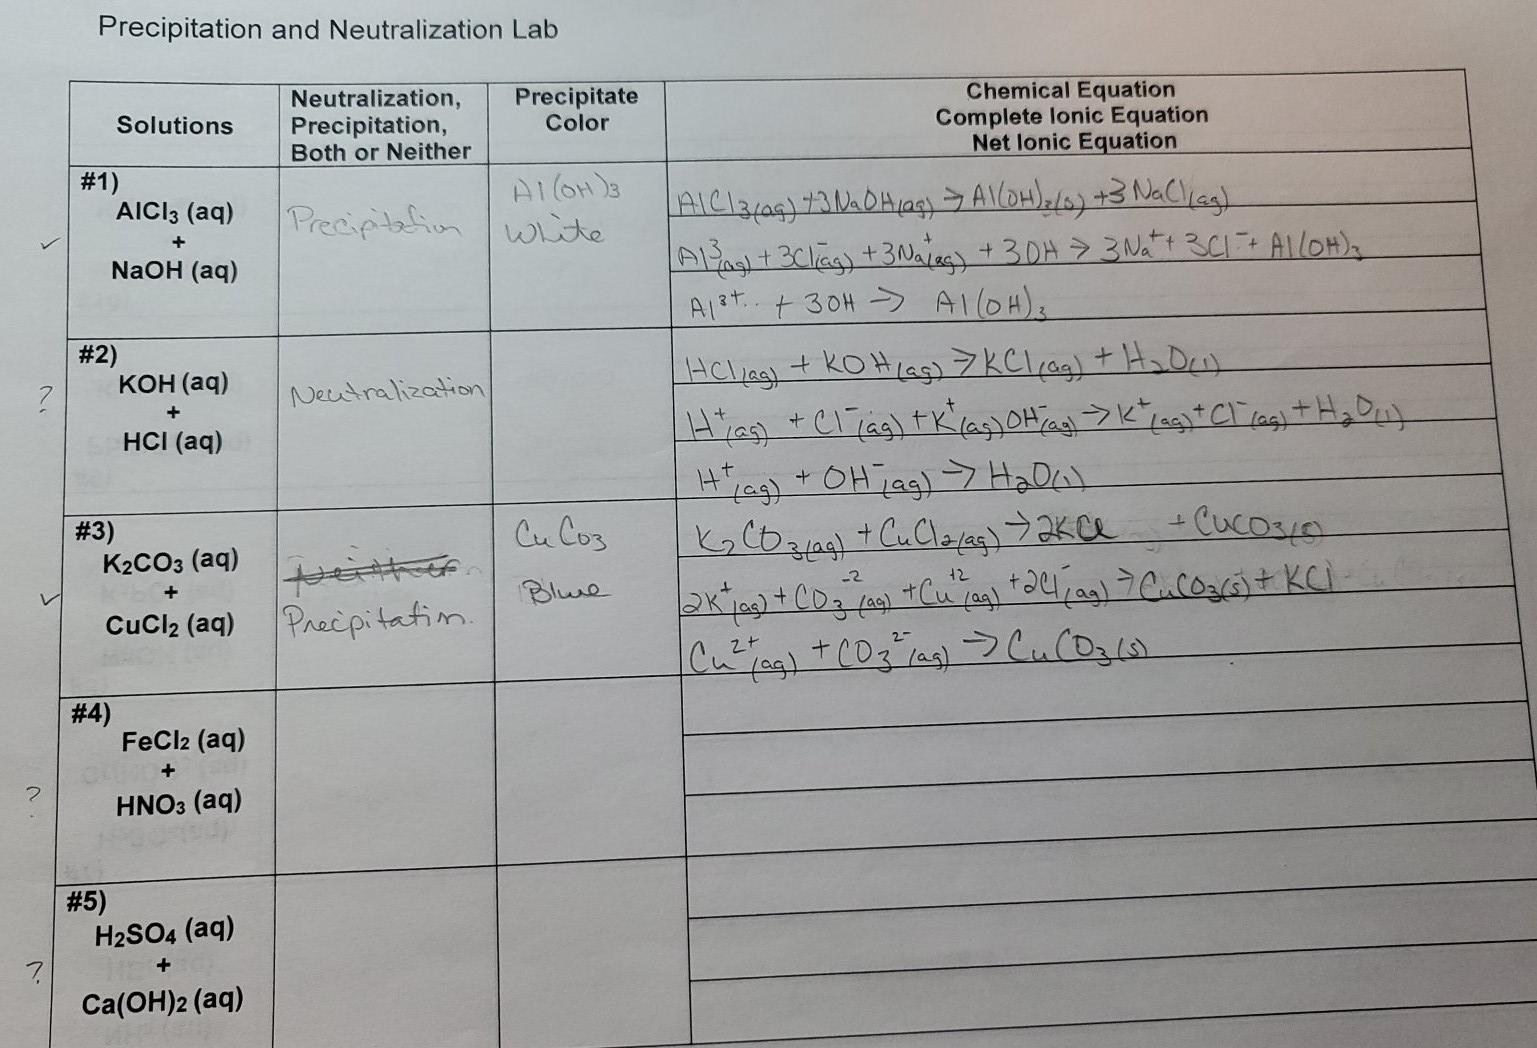 Precipitation and Neutralization Lab
Solutions
Neutralization,
Precipitation,
Both or Neither
Precipitate
Color
Chemical Equation
Complete Ionic Equation
Net Ionic Equation
#1)
AlCl₃ (aq)
+
NaOH (aq)
✓
Precipitation
Al(OH)3
White
AlCl3(aq) + 3NaOH(aq) → Al(OH)3(s) + 3 NaCl(aq)
Al³(aq) + 3Cl⁻(aq) + 3Na⁺(aq) + 3OH → 3Na⁺ + 3Cl⁻ + Al(OH)3
Al³⁺ + 3OH → Al(OH)3
#2)
KOH (aq)
+
HCl (aq)
?
Neutralization
HCl(aq) + KOH(aq) → KCl(aq) + H2O(l)
H⁺(aq) + Cl⁻(aq) + K⁺(aq) OH⁻(aq) → K⁺(aq) + Cl⁻(aq) + H2O(l)
H⁺(aq) + OH⁻(aq) → H2O(l)
#3)
K₂CO₃ (aq)
+
CuCl₂ (aq)
✓
Neither
Precpitation.
CuCo3
Blue
K2CO3(aq) + CuCl2(aq) → 2KCl + CuCO3(s)
2K⁺(aq) + CO3⁻²(aq) + Cu⁺²(aq) + 2Cl⁻(aq) → CuCO3(s) + KCl
Cu²⁺(aq) + CO3²⁻(aq) → CuCO3(s)
#4)
FeCl₂ (aq)
+
HNO₃ (aq)
?
#5)
H₂SO₄ (aq)
+
Ca(OH)₂ (aq)
?